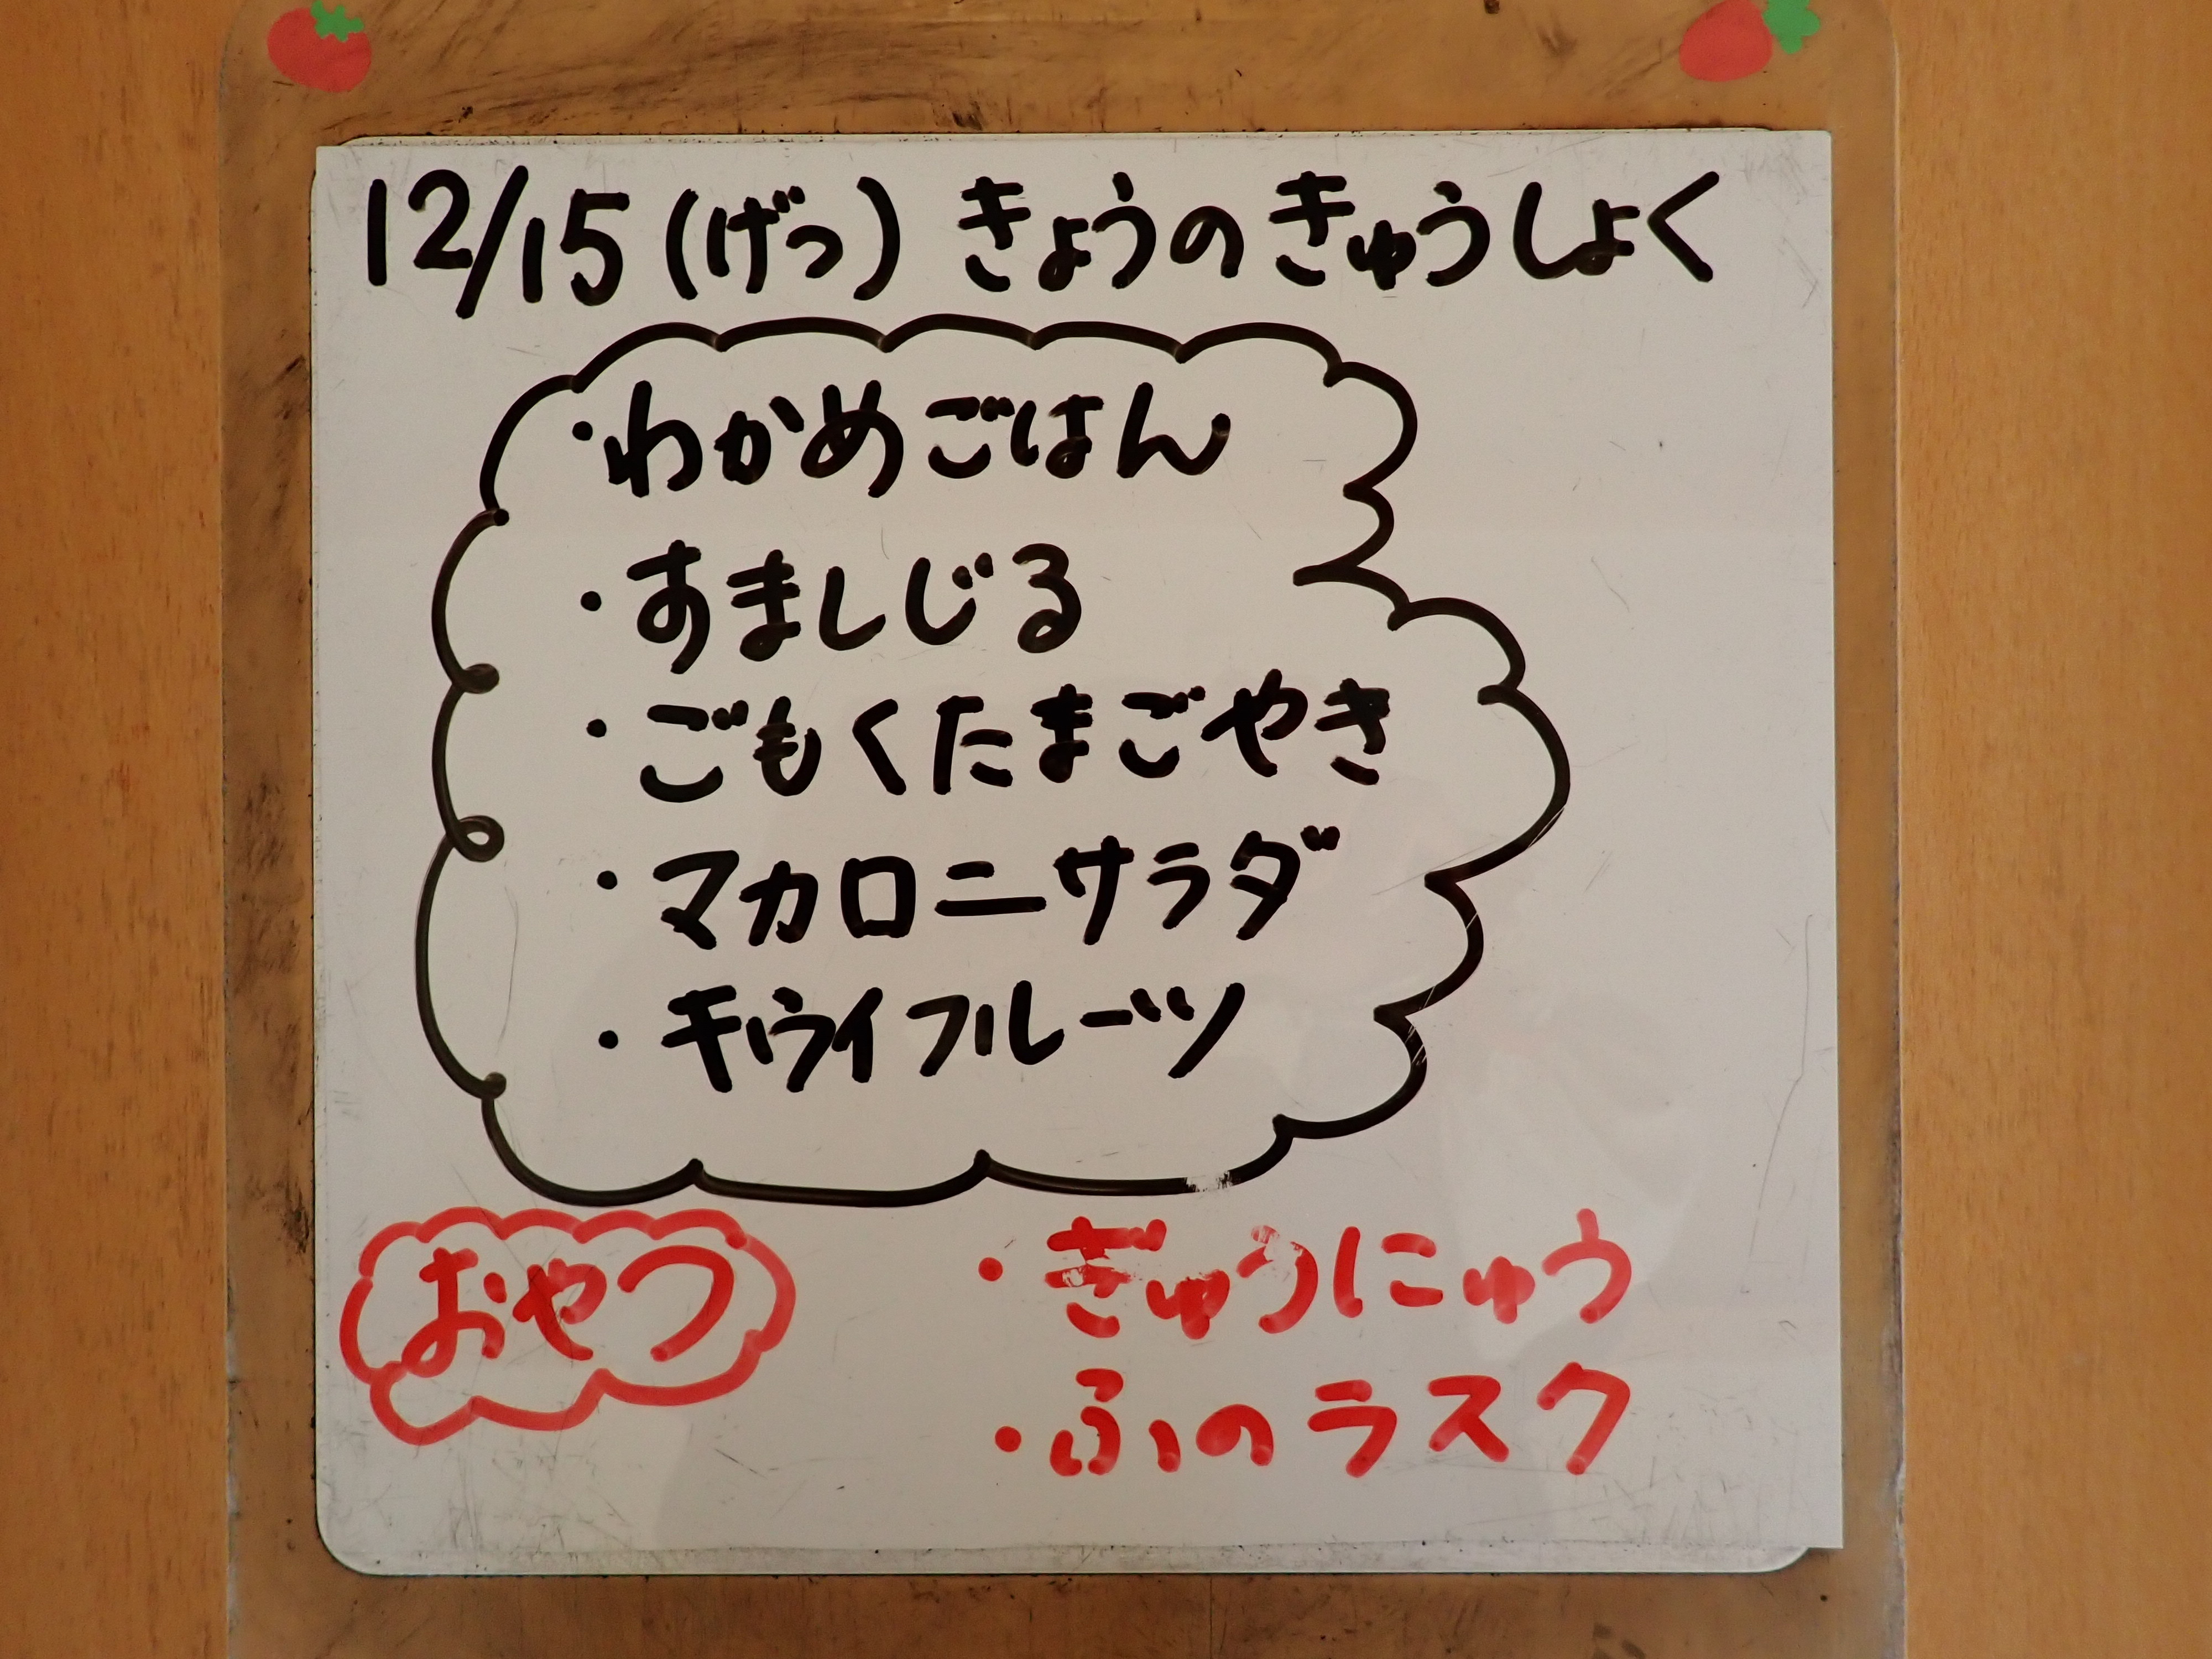 12/15(げつ) きょうのきゅうしょく
・わかめごはん
・すましじる
・ごもくたまごやき
・マカロニサラダ
・キウイフルーツ
おやつ
・ぎゅうにゅう
・ふのラスク